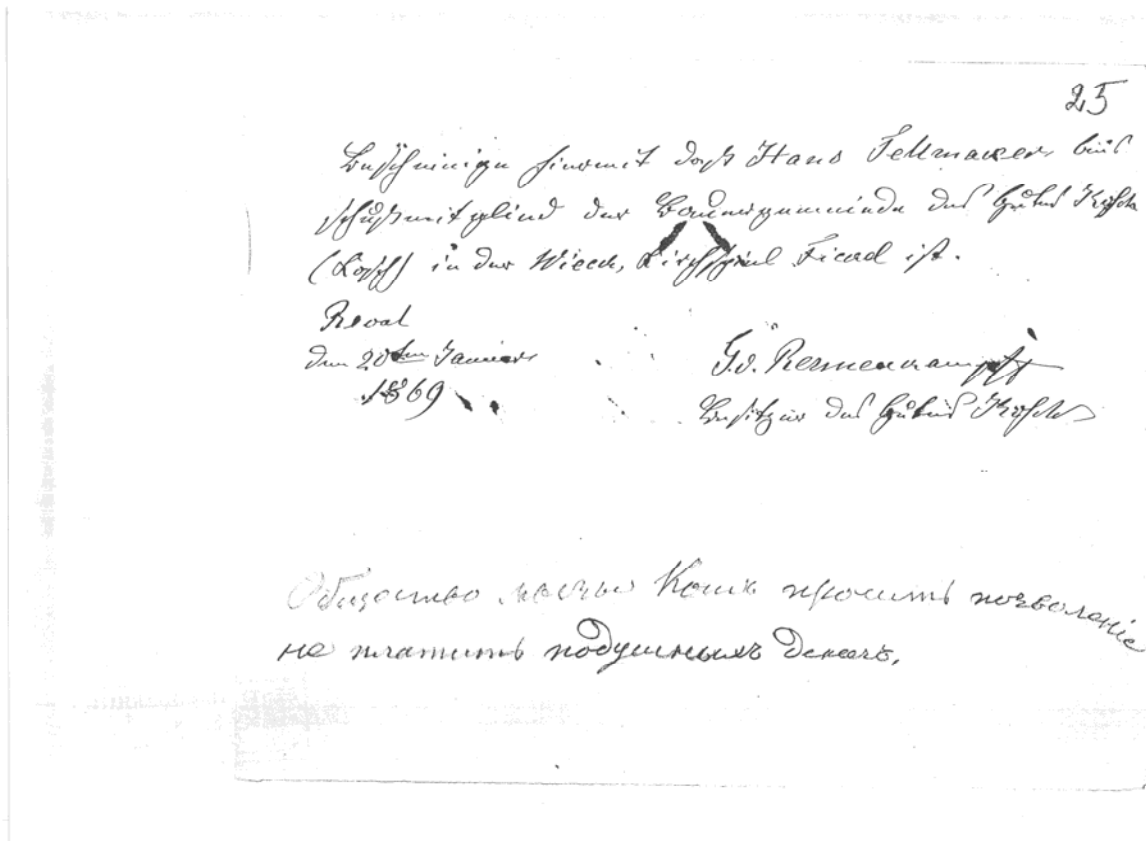 25
Bescheinige hiermit daß Hans Tellmacker
mitglied der Bauergemeinde des Gutes
in der Wieck, Kirchspiel Fickel ist.
Reval
den 20ten Januar
1869
G. v. Rennenkampff
Besitzer des Gutes
Общество просить позволенiе
не платить подушныхъ денегъ.